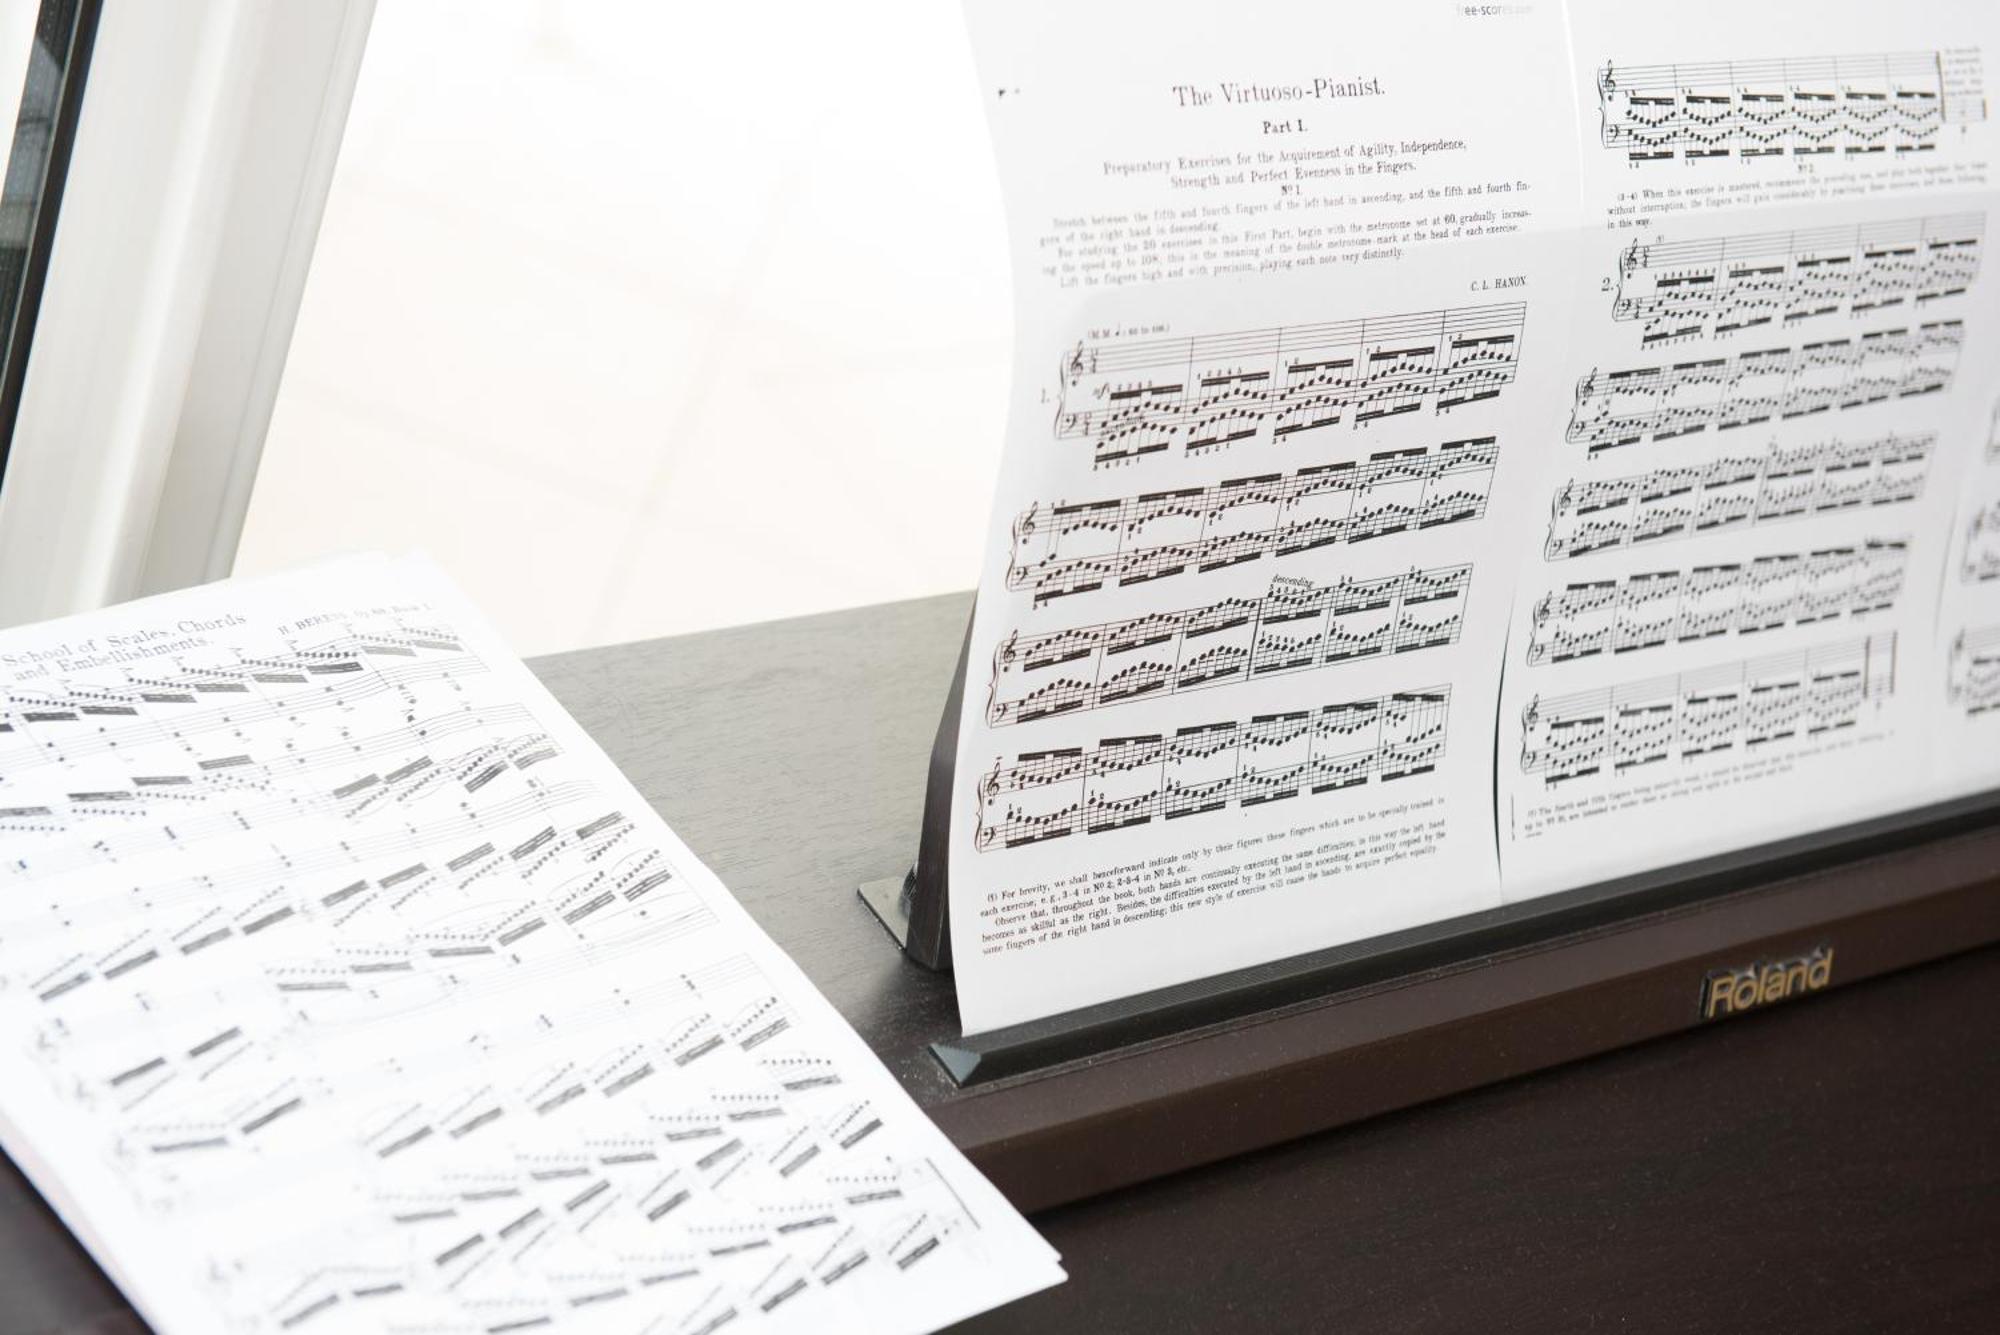 free-scores.com
The Virtuoso-Pianist.
Part I.
Preparatory Exercises for the Acquirement of Agility, Independence,
Strength and Perfect Evenness in the Fingers.
Nº 1.
Stretch between the fifth and fourth fingers of the left hand in ascending, and the fifth and fourth fin-
gers of the right hand in descending.
For studying the 20 exercises in this First Part, begin with the metronome set at 60, gradually increas-
ing the speed up to 108; this is the meaning of the double metronome-mark at the head of each exercise.
Lift the fingers high and with precision, playing each note very distinctly.
C. L. HANON.
(M.M. ♩= 60 to 108.)
1.
mf
descending
(1) For brevity, we shall henceforward indicate only by their figures those fingers which are to be specially trained in
each exercise; e.g., 3-4 in Nº 2; 2-3-4 in Nº 3, etc.
Observe that, throughout the book, both hands are continually executing the same difficulties; in this way the left hand
becomes as skilful as the right. Besides, the difficulties executed by the left hand in ascending, are exactly copied by the
same fingers of the right hand in descending; this new style of exercise will cause the hands to acquire perfect equality.
Nº 2.
(3-4) When this exercise is mastered, recommence the preceding one, and play both together four times
without interruption; the fingers will gain considerably by practising these exercises, and those following,
in this way.
(1)
2.
(1) The fourth and fifth fingers being
School of Scales, Chords
and Embellishments.
H. BERENS, Op. 88, Book I.
Roland